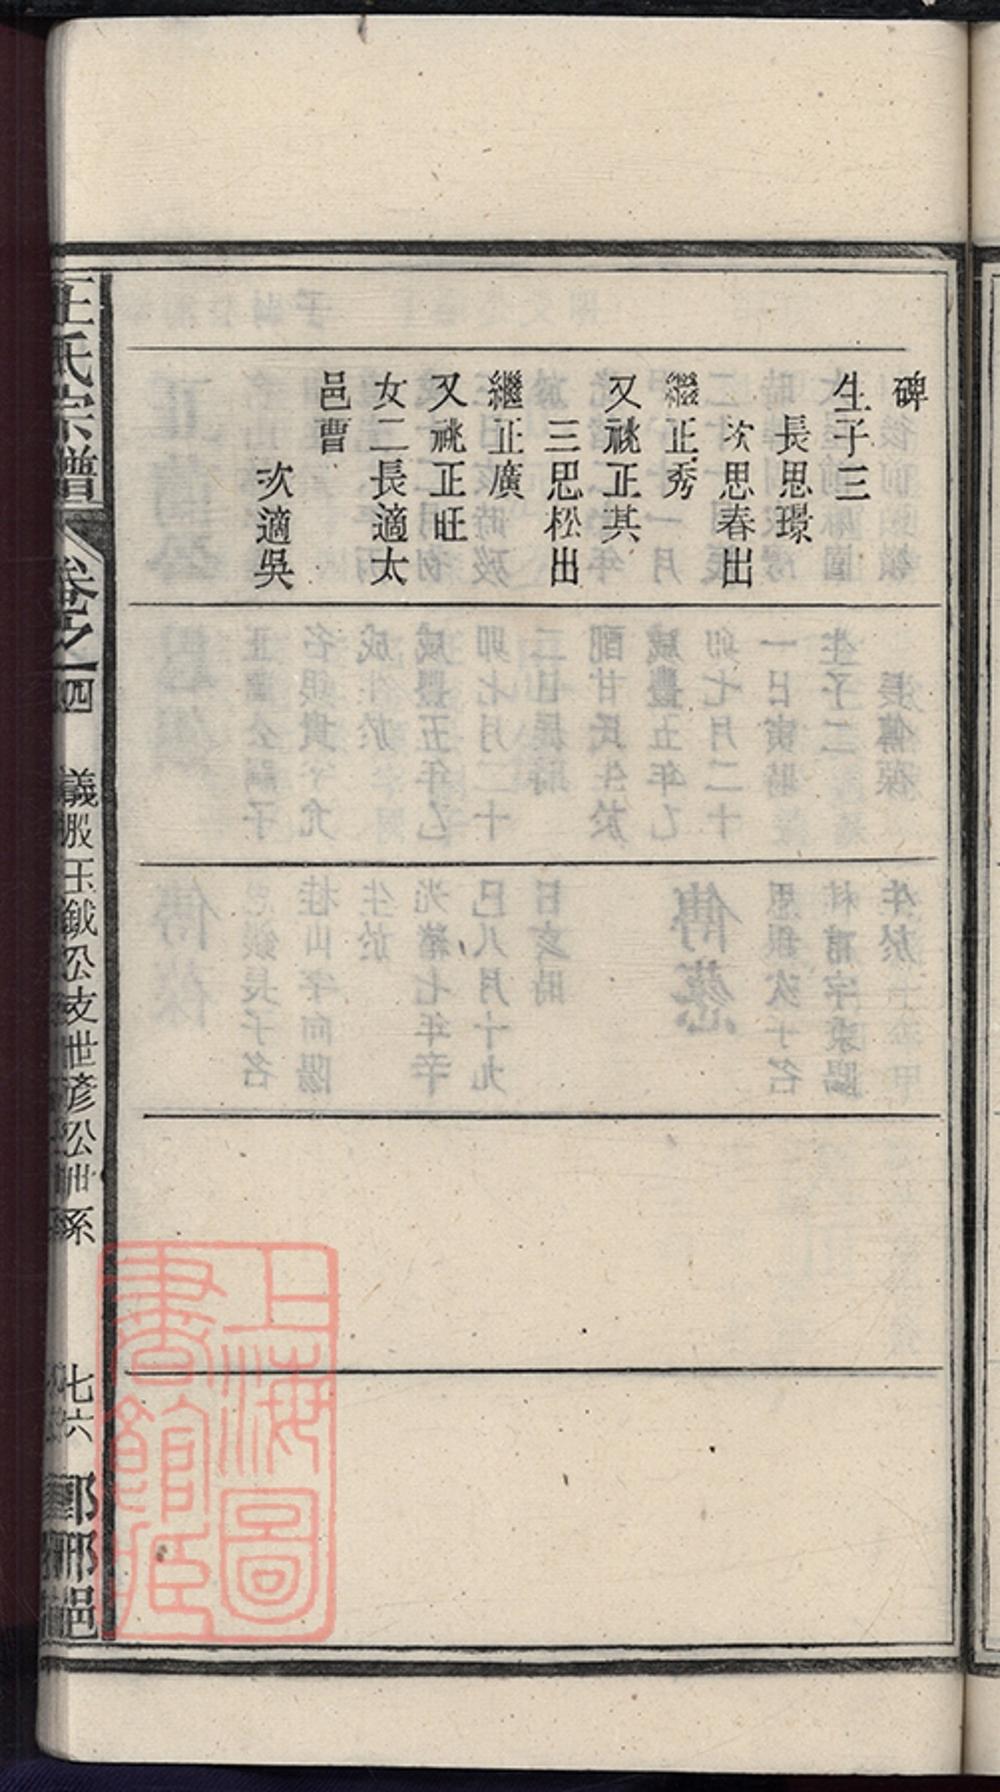 碑
生子三
長思璟
次思春出
繼正秀
又祧正其
三思松出
繼正廣
又祧正旺
女二長適太
邑曹
次適吳
王氏宗譜
卷之一四
義股玉鉞公支世彥公世系
七六
郭邢邑
上海圖
書館藏